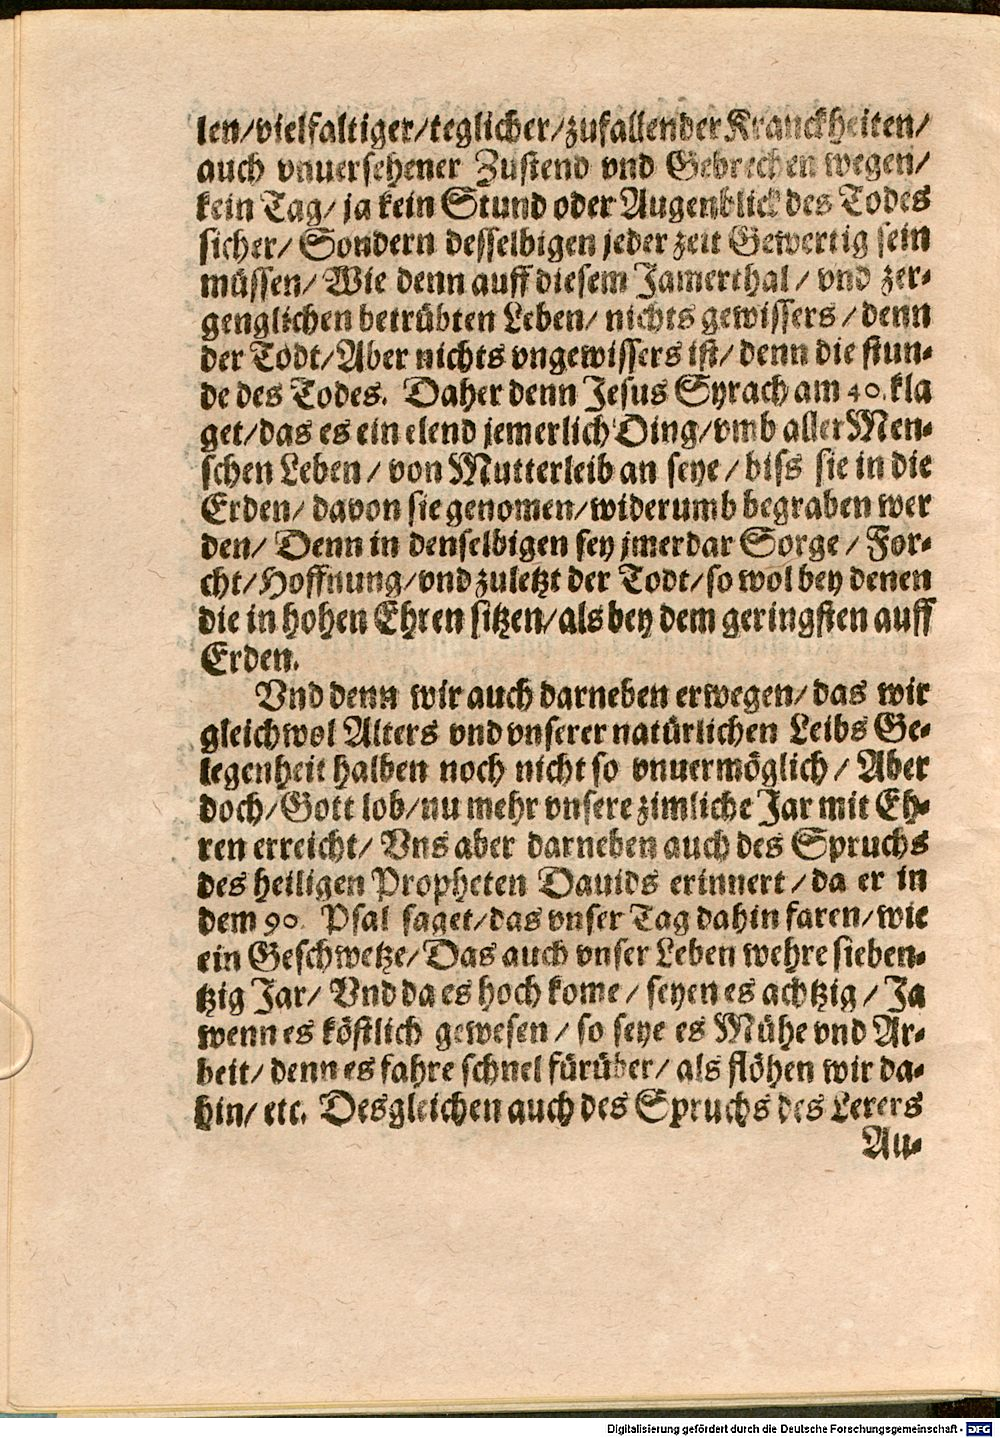 len/vielfaltiger/teglicher/zufallender Kranckheiten/
auch vnuersehener Zustend vnd Gebrechen wegen/
kein Tag/ ja kein Stund oder Augenblick des Todes
sicher/ Sondern desselbigen jeder zeit Gewertig sein
müssen/ Wie denn auff diesem Jamerthal/ vnd zer-
genglichen betrübten Leben/ nichts gewissers/ denn
der Todt/ Aber nichts vngewissers ist/ denn die stun-
de des Todes. Daher denn Jesus Syrach am 40. kla
get/ das es ein elend jemerlich Ding/ vmb aller Men-
schen Leben/ von Mutterleib an seye/ biss sie in die
Erden/ davon sie genomen/ widerumb begraben wer
den/ Denn in denselbigen sey jmerdar Sorge/ For-
cht/ Hoffnung/ vnd zuletzt der Todt/ so wol bey denen
die in hohen Ehren sitzen/ als bey dem geringsten auff
Erden.
Vnd denn wir auch darneben erwegen/ das wir
gleichwol Alters vnd vnserer natürlichen Leibs Ge-
legenheit halben noch nicht so vnuermöglich/ Aber
doch/ Gott lob/ nu mehr vnsere zimliche Jar mit Eh-
ren erreicht/ Vns aber darneben auch des Spruchs
des heiligen Propheten Dauids erinnert/ da er in
dem 90. Psal saget/ das vnser Tag dahin faren/ wie
ein Geschwetze/ Das auch vnser Leben wehre sieben-
tzig Jar/ Vnd da es hoch kome/ seyen es achtzig/ Ja
wenn es köstlich gewesen/ so seye es Mühe vnd Ar-
beit/ denn es fahre schnel fürüber/ als flöhen wir da-
hin/ etc. Desgleichen auch des Spruchs des Lerers
Au-
Digitalisierung gefördert durch die Deutsche Forschungsgemeinschaft - DFG